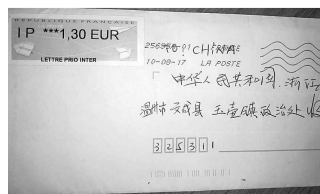 REPUBLIQUE FRANCAISE
IP ***1,30 EUR
LETTRE PRIO INTER
CHINE
10-09-17 LA POSTE
中华人民共和国 浙江
温州市 文成县 玉壶镇政治处
325311